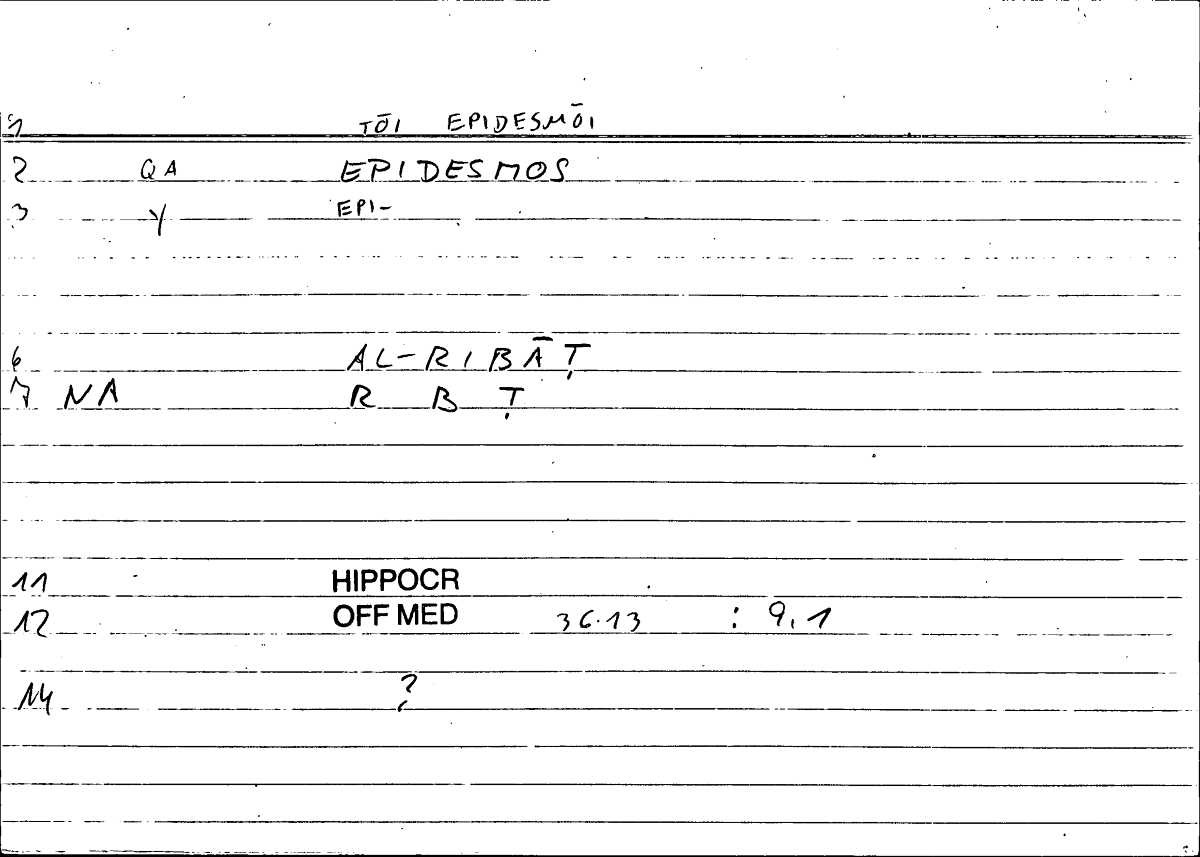 1 TŌI EPIDESMŌI
2 QA EPIDESMOS
3 Y EPI-
6 AL-RIBĀṬ
7 NA R B Ṭ
11 HIPPOCR
12 OFF MED 36.13 : 9,1
14 ?